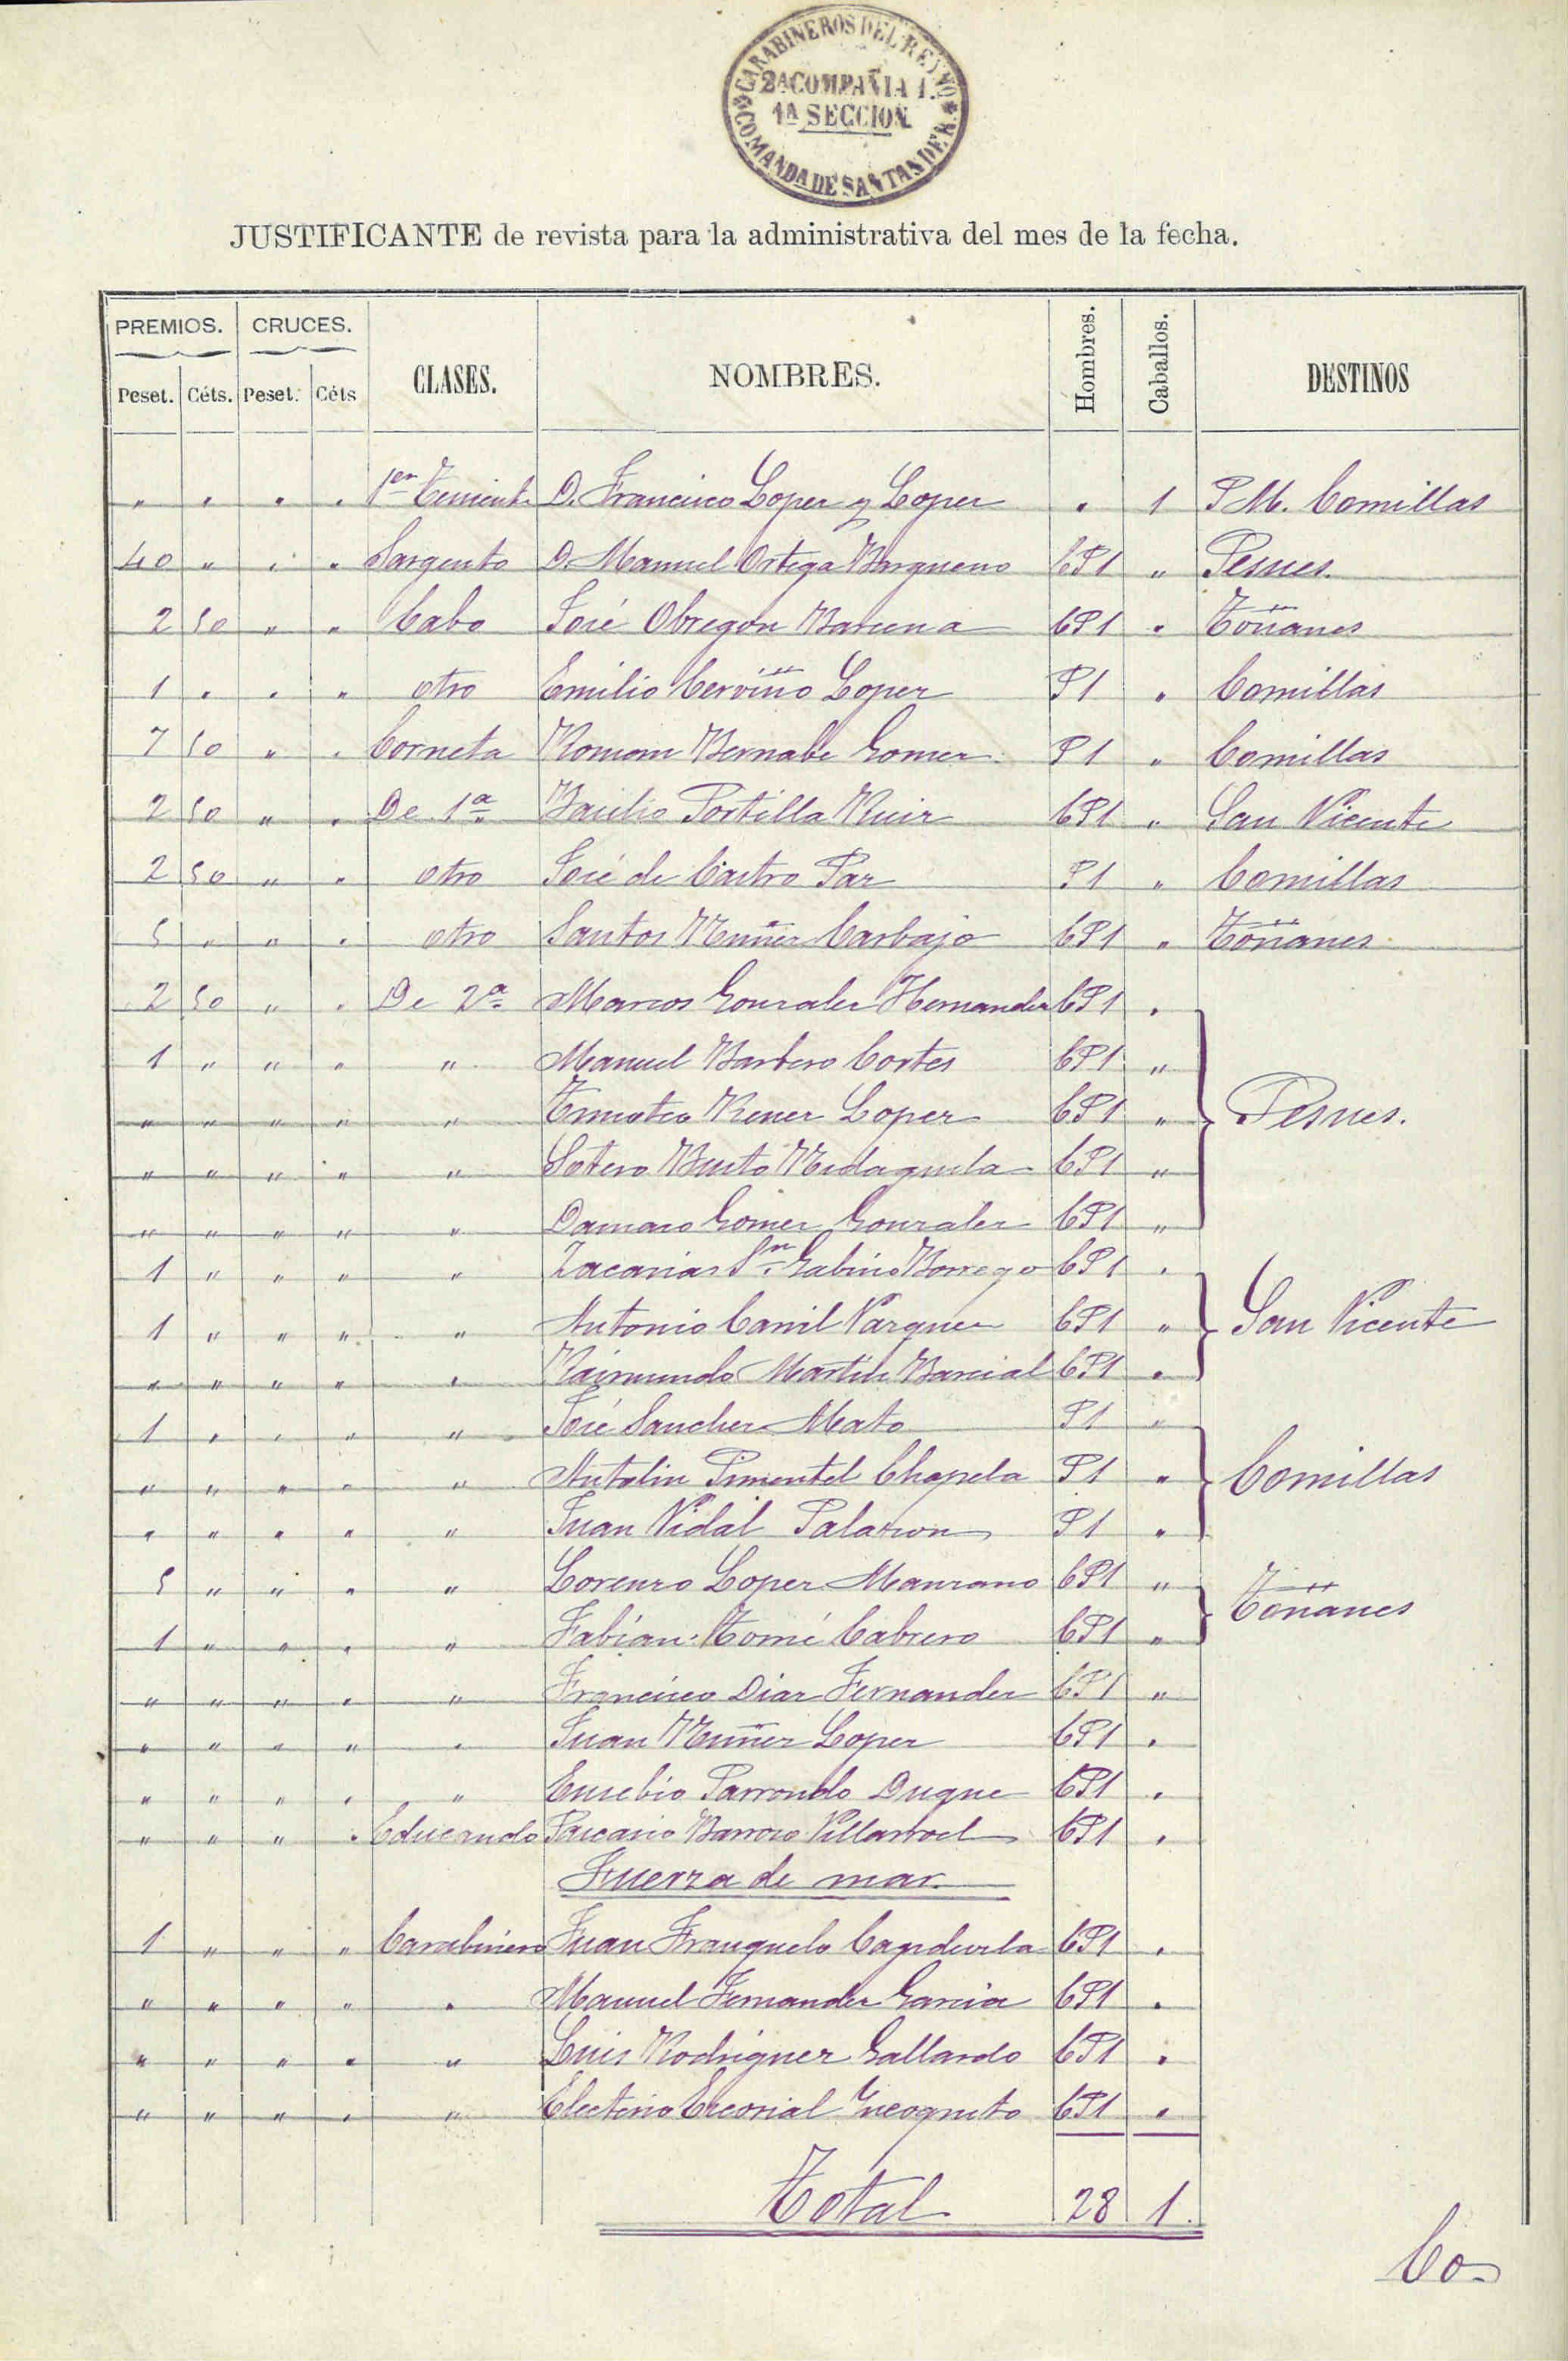 CARABINEROS DEL REYNO
2ª COMPAÑIA
1ª SECCION
COMANDA DE SANTANDER.
JUSTIFICANTE de revista para la administrativa del mes de la fecha.
PREMIOS. CRUCES. CLASES. NOMBRES. Hombres. Caballos. DESTINOS
Peset. Céts. Peset. Céts
" " " " 1er Tenient. D. Francisco Lopez y Lopez " 1 P.M. Comillas
40 " " " Sargento D. Manuel Ortega Burgueno CP1 " Pesues.
2 50 " " Cabo José Obregon Barcena CP1 " Toñanes
1 " " " otro Emilio Cerviño Lopez P1 " Comillas
7 50 " " Corneta Roman Bernabé Gomez P1 " Comillas
2 50 " " De 1ª Basilio Portilla Ruiz CP1 " San Vicente
2 50 " " otro José de Castro Paz P1 " Comillas
5 " " " otro Santos Nuñez Carbajo CP1 " Toñanes
2 50 " " De 2ª Marcos Gonzalez Hernandez CP1 "
1 " " " " Manuel Barbero Cortes CP1 "
" " " " " Timoteo Lopez CP1 " Pesues.
" " " " " Sotero CP1 "
" " " " " Damaso Gomez Gonzalez CP1 "
1 " " " " Zacarias Sn. Gabino Borrego CP1 "
1 " " " " Antonio Canil Vazquez CP1 " San Vicente
" " " " " Raimundo Martin Barcial CP1 "
1 " " " " José Sanchez Mato P1 "
" " " " " Antolin Pimentel Chapela P1 " Comillas
" " " " " Juan Vidal Palazon P1 "
5 " " " " Lorenzo Lopez Manzano CP1 "
1 " " " " Fabian Tomé Cabrero CP1 " Toñanes
" " " " " Francisco Diaz Fernandez CP1 "
" " " " " Juan Nuñez Lopez CP1 "
" " " " " Eusebio Parrondo Duque CP1 "
" " " " Educando Pascasio Barroso Villarroel CP1 "
Fuerza de mar.
1 " " " Carabinero Juan Franquelo CP1 "
" " " " " Manuel Fernandez Garcia CP1 "
" " " " " Luis Rodriguez Gallardo CP1 "
" " " " " Electerio Escorial Incognito CP1 "
Total 28 1
Co-